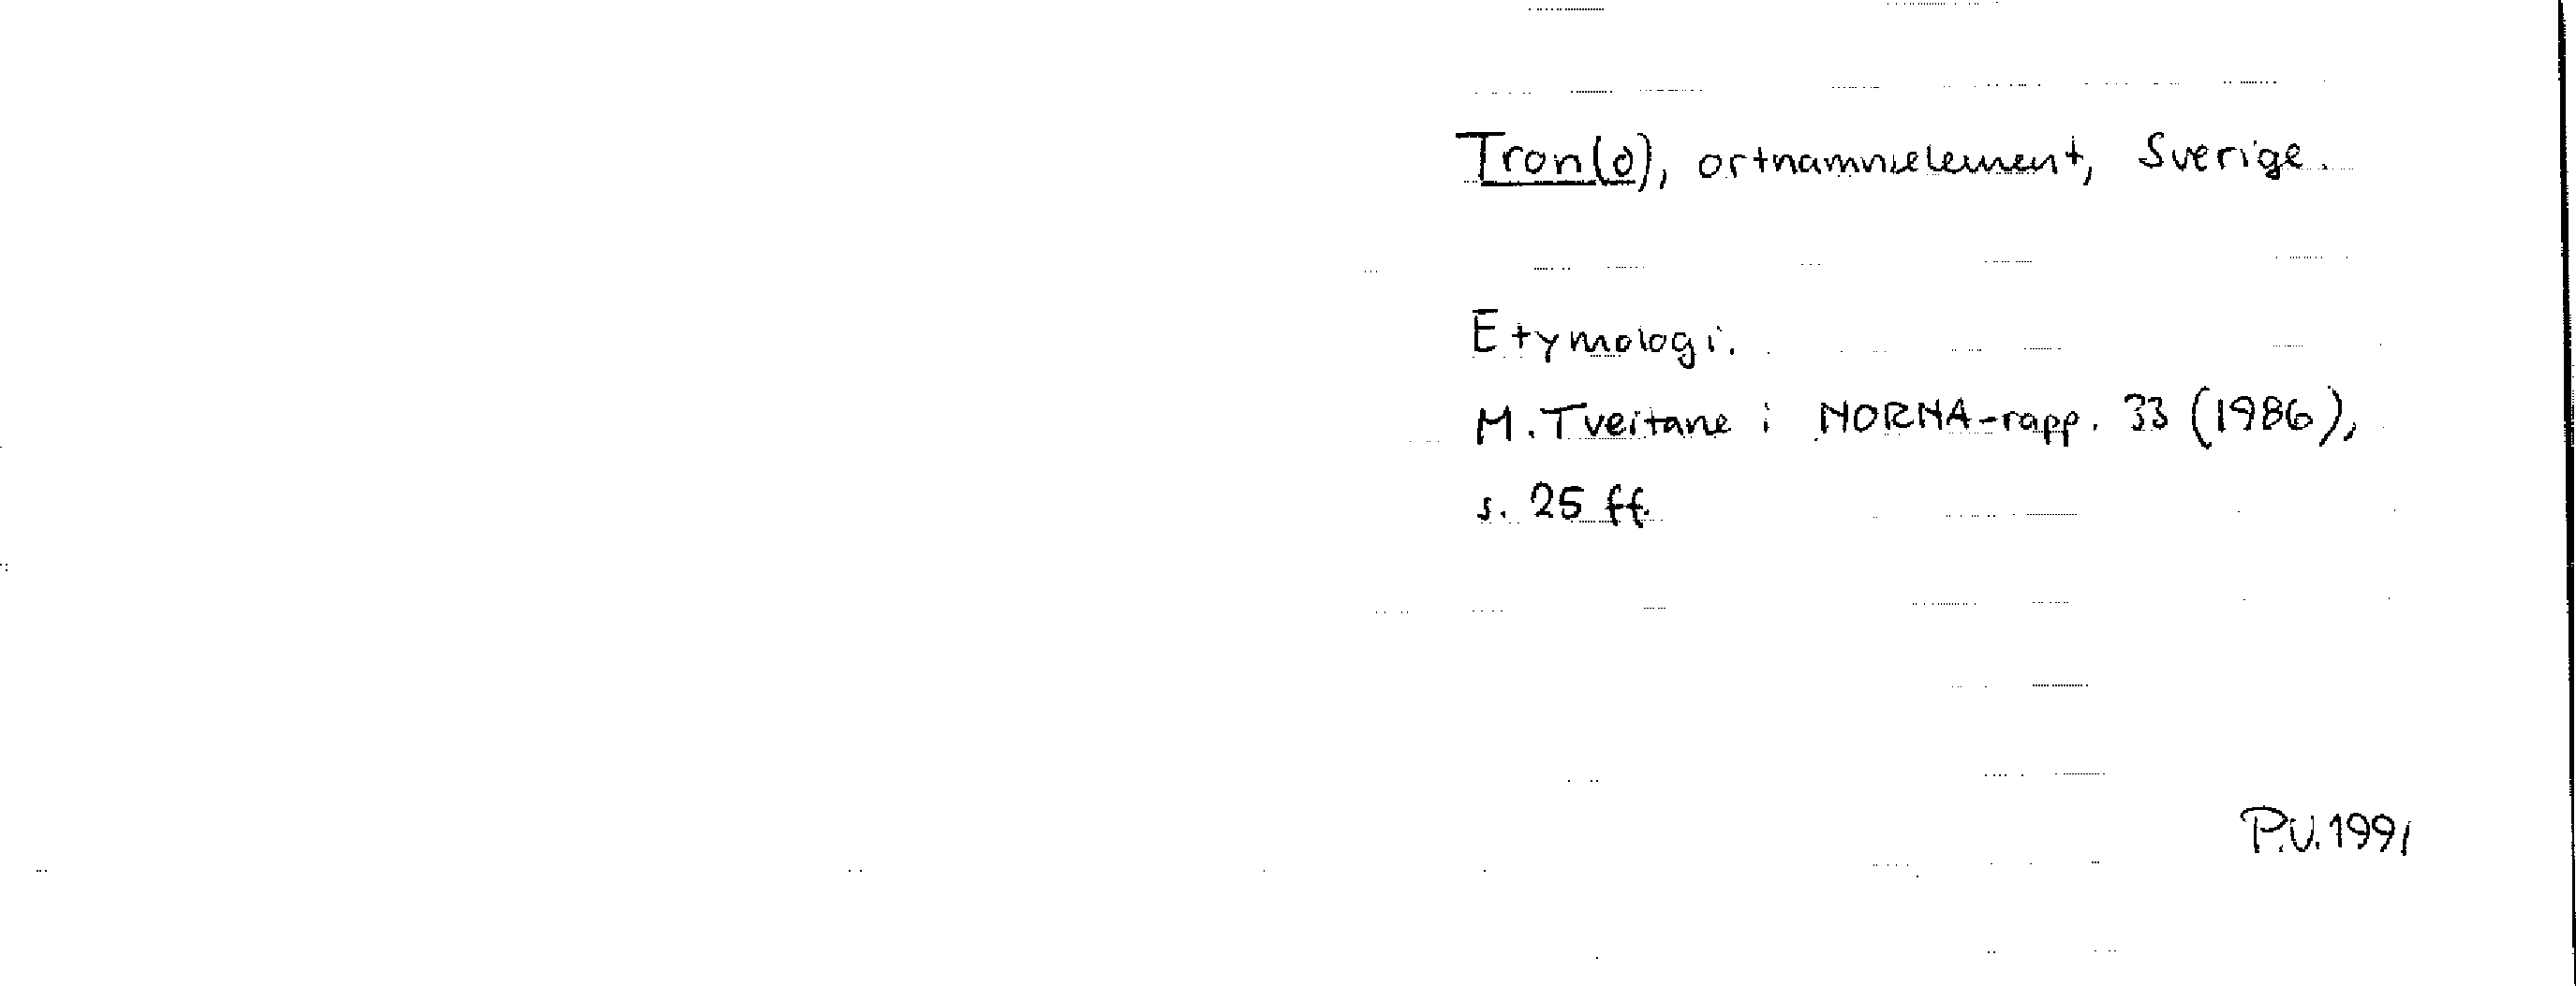 Tron(o), ortnamnselement, Sverige.
Etymologi.
M. Tveitane i NORNA-rapp. 33 (1986),
s. 25 ff.
P.V. 1991